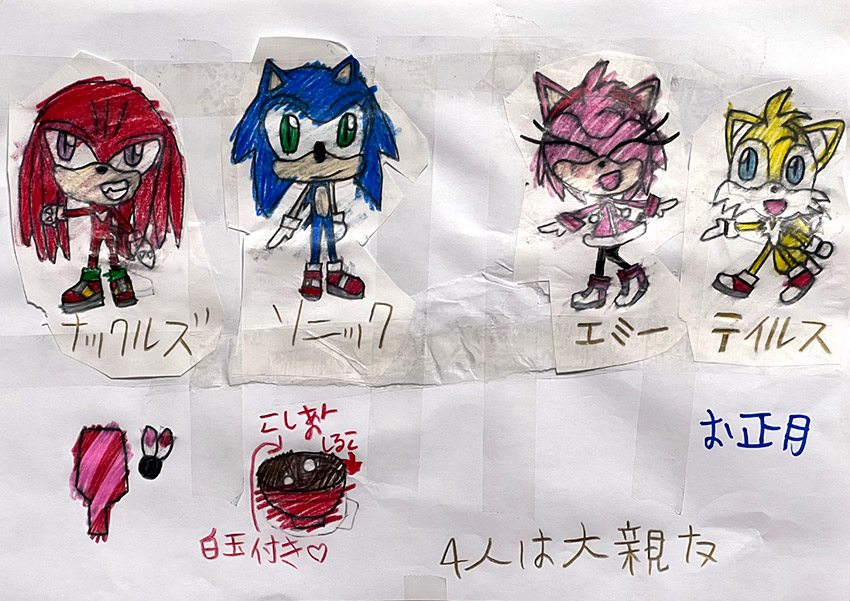 ナックルズ
ソニック
エミー
テイルス
こしあん
しるこ
白玉付き♡
お正月
4人は大親友